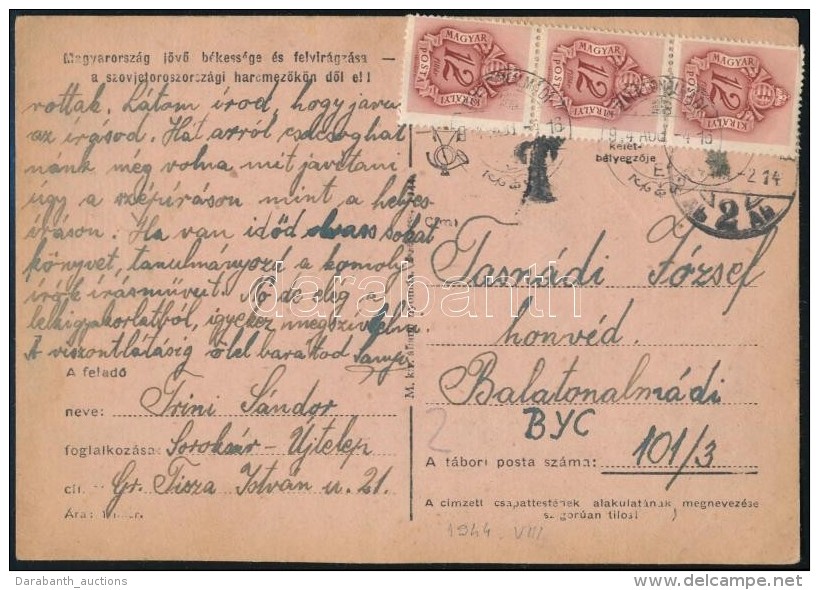 Magyarország jövő békessége és felvirágzása —
a szovjetoroszországi harcmezőkön dől el!
vottak, Látom írod, hogy java
az írásod. Hát arról
nánk még volna mit javítani
úgy a szépíráson mint a helyes-
íráson. Ha van időd olvass sokat
könyvet, tanulmányozd a komoly
írók írásműveit. No de elég a
lelkigyakorlatból, igyekez megszívlelni.
A viszontlátásig ölel barátod Sanyi
A feladó
neve: Trini Sándor
foglalkozása: Soroksár-Újtelep
cím: Gr. Tisza István u. 21.
Ára:
MAGYAR KIRÁLYI POSTA 12 fillér
MAGYAR KIRÁLYI POSTA 12 fillér
MAGYAR KIRÁLYI POSTA 12 fillér
T
kelet-
bélyegzője
-2 14
2
Cím:
Tasnádi József
honvéd.
Balatonalmádi
BYC
2
A tábori posta száma: 101/3
A címzett csapattestének alakulatának megnevezése
szigorúan tilos!
1944. VIII.
darabanth
Darabanth_auctions
delcampe.net